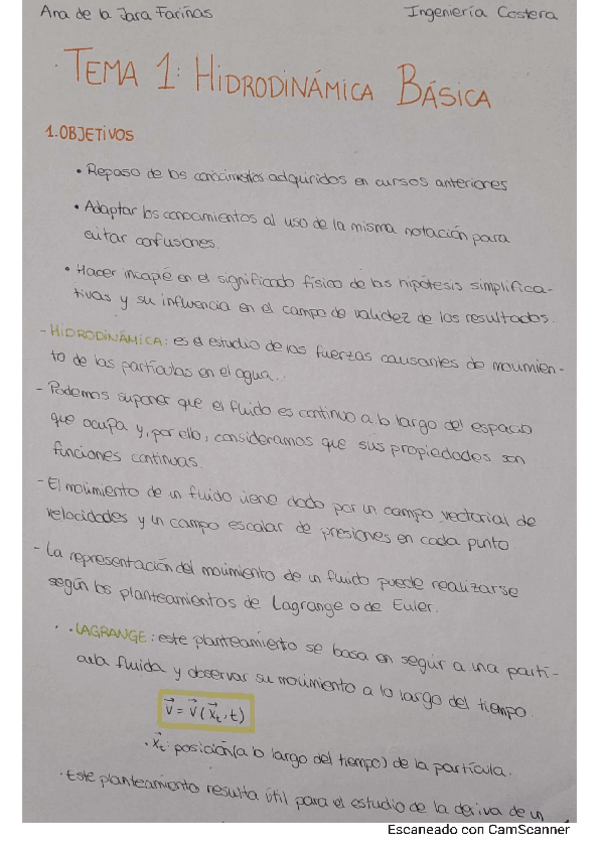 Ana de la Jara Fariñas Ingeniería Costera
TEMA 1: HIDRODINÁMICA BÁSICA
1. OBJETIVOS
• Repaso de los conocimientos adquiridos en cursos anteriores
• Adaptar los conocimientos al uso de la misma notación para
evitar confusiones.
• Hacer incapié en el significado físico de las hipótesis simplifica-
tivas y su influencia en el campo de validez de los resultados.
- HIDRODINÁMICA: es el estudio de las fuerzas causantes de movimien-
to de las partículas en el agua...
- Podemos suponer que el fluido es continuo a lo largo del espacio
que ocupa y, por ello, consideramos que sus propiedades son
funciones continuas.
- El movimiento de un fluido viene dado por un campo vectorial de
velocidades y un campo escalar de presiones en cada punto
- La representación del movimiento de un fluido puede realizarse
según los planteamientos de Lagrange o de Euler.
· · LAGRANGE: este planteamiento se basa en seguir a una partí-
cula fluida y observar su movimiento a lo largo del tiempo.
v⃗ = v⃗ (x⃗t, t)
· x⃗t: posición (a lo largo del tiempo) de la partícula.
· Este planteamiento resulta útil para el estudio de la deriva de un
Escaneado con CamScanner